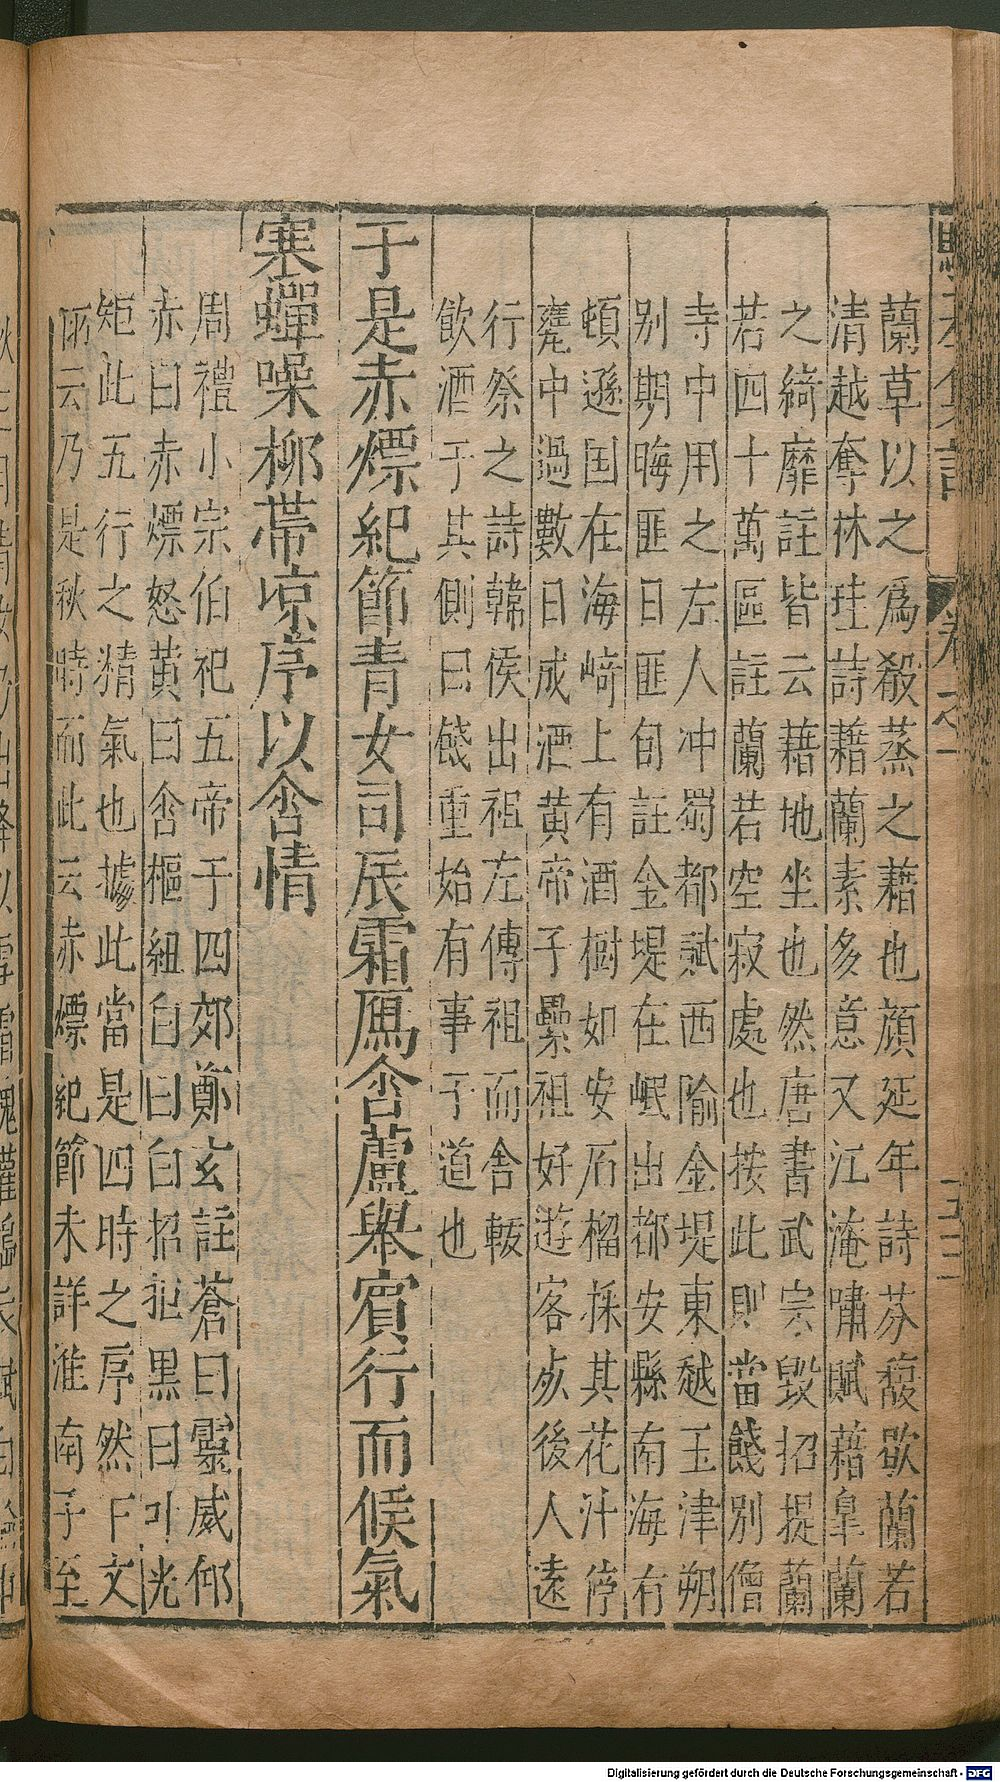 蘭草以之爲殽蒸之藉也顔延年詩芬馥歇蘭若
清越奪琳珪詩藉蘭素多意又江淹嘯賦藉皐蘭
之綺靡註皆云藉地坐也然唐書武宗毀招提蘭
若四十萬區註蘭若空寂處也按此則當餞別僧
寺中用之左人冲蜀都賦西隃金堤東越玉津朔
别期晦匪日匪旬註金堤在岷出都安縣南海有
頓遜国在海﨑上有酒樹如安石榴採其花汁停
甕中過數日成酒黄帝子纍祖好遊客死後人遠
行祭之詩韓侯出祖左傳祖而舎軷
飲酒于其側曰餞重始有事于道也
于是赤熛紀節青女司辰霜鴈含蘆舉賓行而候氣
寒蟬噪柳帶凉序以含情
周禮小宗伯祀五帝于四郊鄭玄註蒼曰靈威仰
赤曰赤熛怒黄曰含樞紐白曰白招拒黒曰叶光
矩此五行之精氣也據此當是四時之序然下文
所云乃是秋時而此云赤熛紀節未詳淮南子至
卷之一
Digitalisierung gefördert durch die Deutsche Forschungsgemeinschaft - DFG